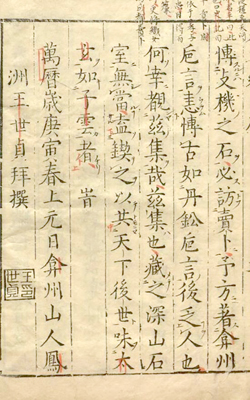 慱支機之石必訪賣卜予方著弇州
巵言恚慱古如丹鈆巵言後乏人也
何幸覩茲集哉茲集也藏之深山石
室無當盍鍥之以共天下後世味太
玄如子雲者　旹
萬曆歲庚寅春上元日弇州山人鳳
洲王世貞拜撰